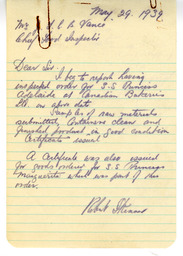 May 29. 1934
Mr H. L. A. Vance
Chief Food Inspector
Dear Sir
I beg to report having
inspected order for S-S Princess
Adelaide at Canadian Bakeries
Ltd. on above date
Samples of raw materials
submitted, Containers clean and
finished product in good condition
Certificate issued
A Certificate was also issued
for goods ordered for S.S Princess
Marguerite which was part of this
order.
Robert